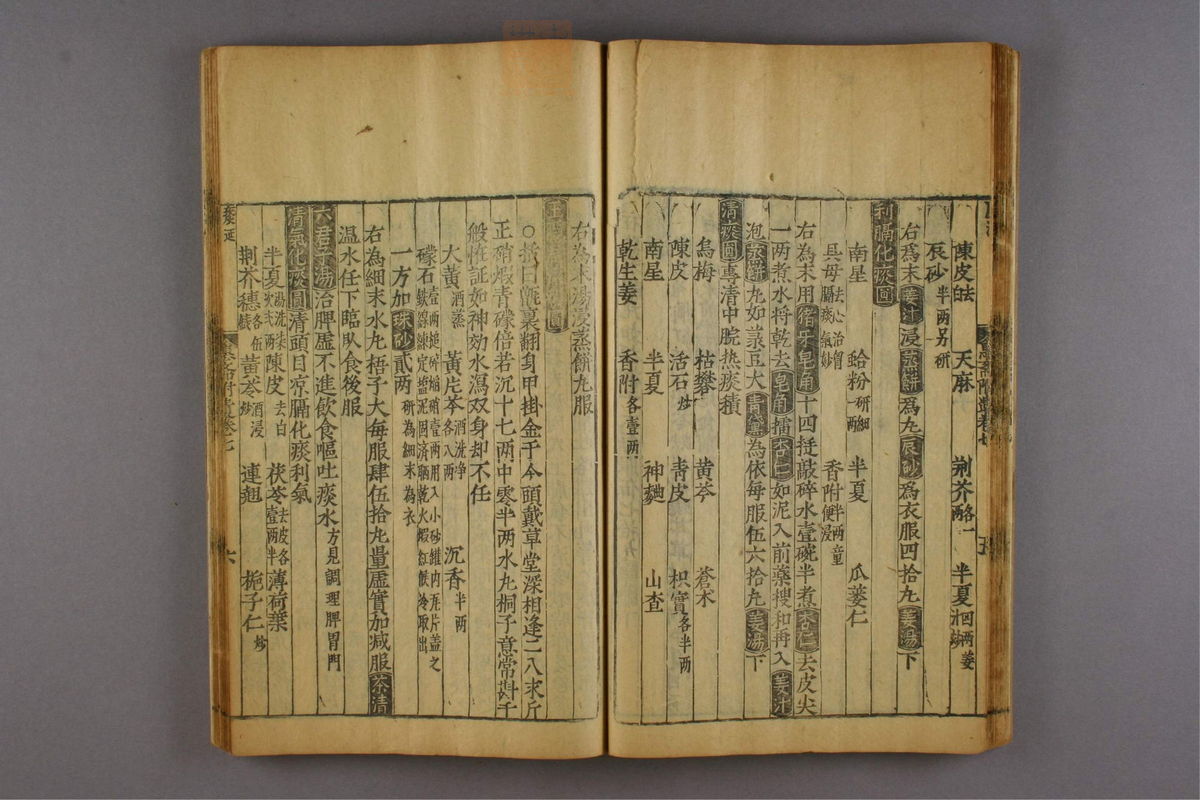 陳皮去白 天麻 荆芥 半夏
辰砂半兩另研
右為末姜汁浸蒸餅為丸辰砂為衣服四拾丸姜湯下
利膈化痰圓
南星 蛤粉研細一兩 半夏 瓜蔞仁
貝母去心治胷膈痰氣妙 香附半兩童便浸
右為末用猪牙皂角十四挺敲碎水壹碗半煮杏仁去皮尖
一兩煮水將乾去皂角擂杏仁如泥入前藥搜和再入姜汁
泡蒸餅丸如菉豆大青黛為依每服伍六拾丸姜湯下
清痰圓專清中脘热痰積
烏梅 枯礬 黄芩 蒼术
陳皮 活石炒 青皮 枳實各半两
南星 半夏 神麯 山查
乾生姜 香附各壹两
右為末湯浸蒸餅丸服
○抵曰甑裏翻身甲掛金于今頭戴草堂深相逢二八求斤
正硝煆青礞倍若沉十七两中零半两水丸桐子意常斟千
般怪証如神効水瀉双身却不任
大黄酒蒸 黄芩酒洗净各八两 沉香半两
礞石壹两搥碎硝壹两用入小砂罐内瓦片盖之鐵線練定塩泥固济晒乾火煆紅候冷取出
一方加珠砂贰两研為細末為衣
右為細末水丸梧子大每服肆伍拾丸量虚實加减服茶清
温水任下臨卧食後服
六君子湯治脾虚不進飲食嘔吐痰水方見調理脾胃門
清氣化痰圓清頭目凉膈化痰利氣
半夏湯洗七次弍两 陳皮去白 茯苓去皮各壹两半 薄荷葉
荆芥穗各伍 黄芩酒浸炒 連翹 栀子仁炒
六